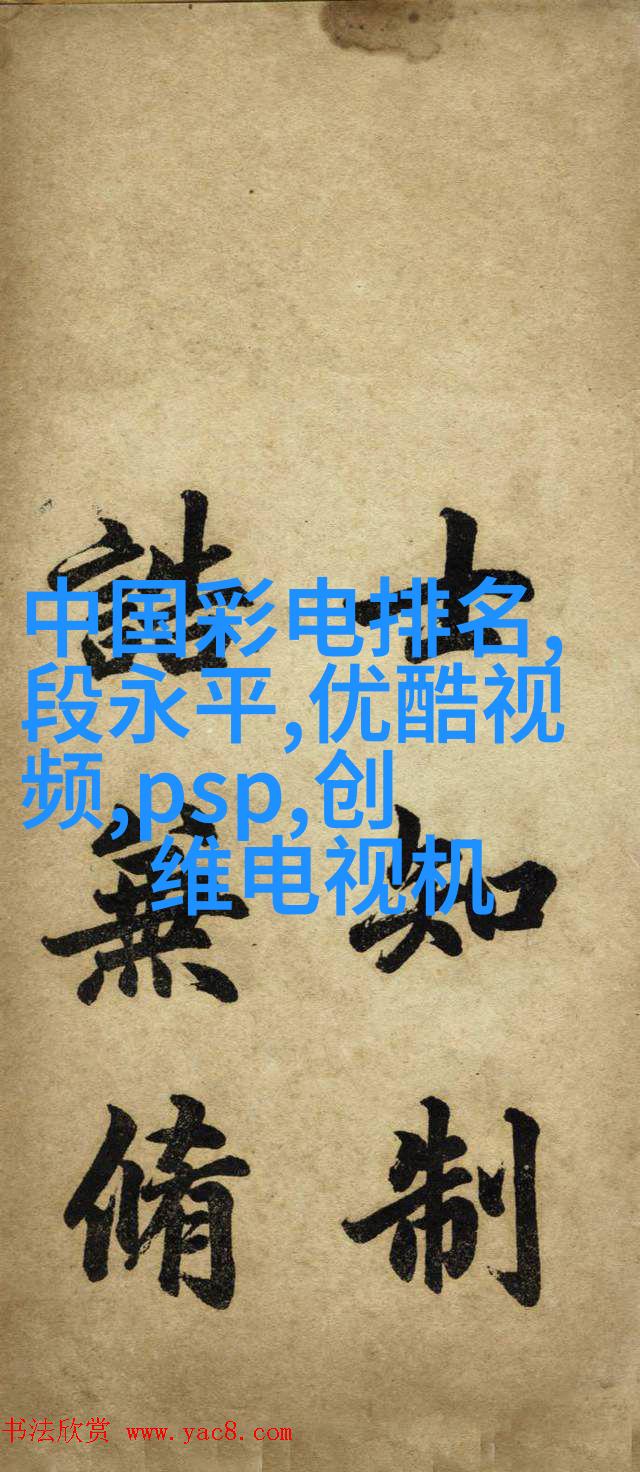 中国彩电排名,
段永平,优酷视
频,psp,创
维电视机
士知制
誥兼脩
书法欣赏 www.yac8.com